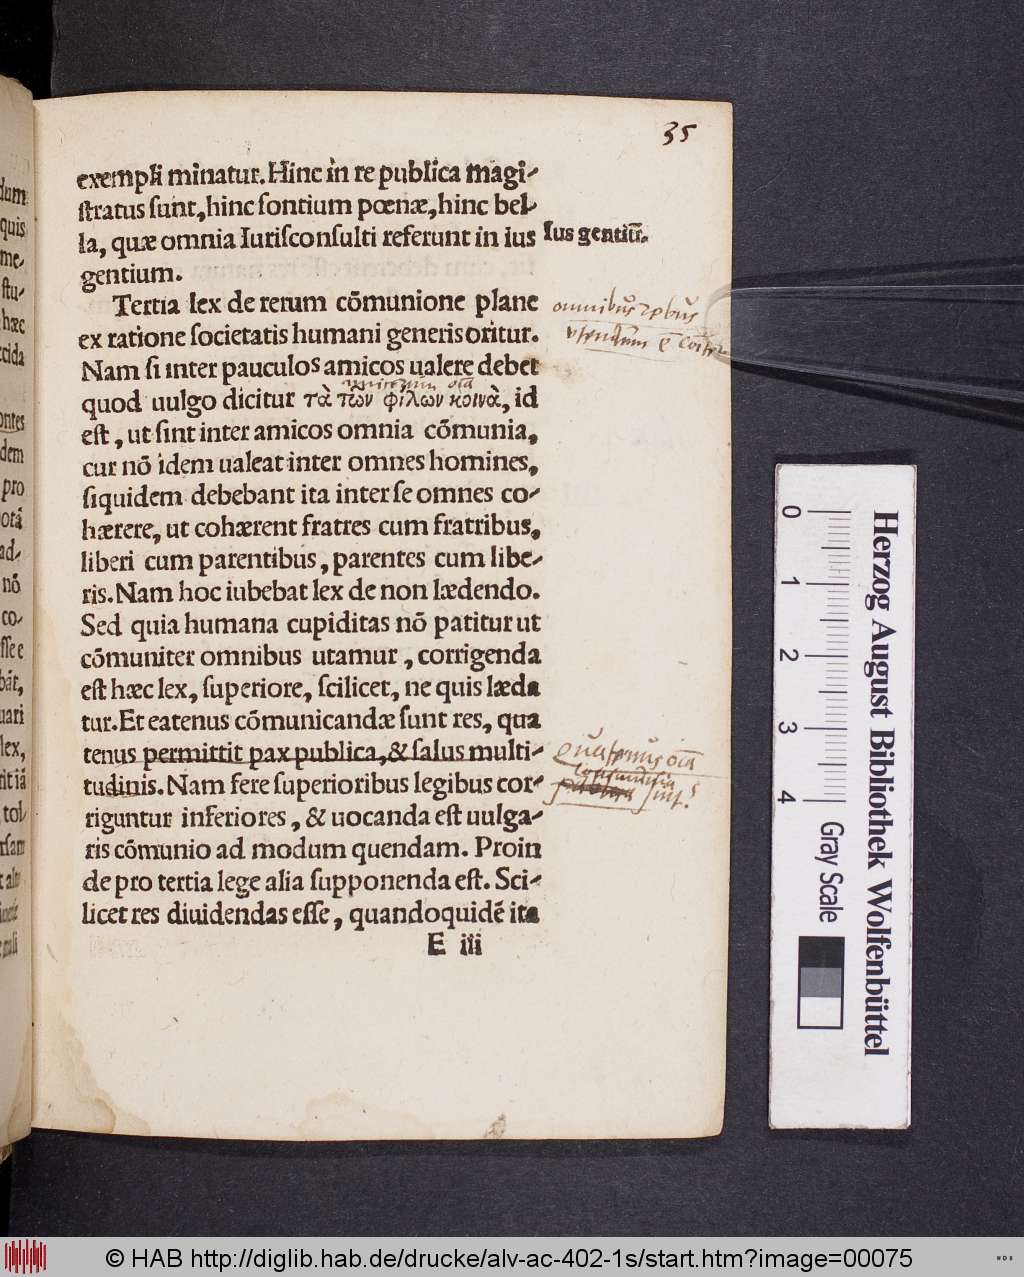 35
exempli minatur. Hinc in re publica magi-
ſtratus ſunt, hinc ſontium pœnæ, hinc bel-
la, quæ omnia Iuriſconſulti referunt in ius
Ius gentiū.
gentium.
Tertia lex de rerum cōmunione plane
omnibus rebus
ex ratione ſocietatis humani generis oritur.
utendum
Nam ſi inter pauculos amicos ualere debet
quod uulgo dicitur τὰ τῶν φίλων κοινὰ, id
eſt, ut ſint inter amicos omnia cōmunia,
cur nō idem ualeat inter omnes homines,
ſiquidem debebant ita inter ſe omnes co-
hærere, ut cohærent fratres cum fratribus,
liberi cum parentibus, parentes cum libe-
ris. Nam hoc iubebat lex de non lædendo.
Sed quia humana cupiditas nō patitur ut
cōmuniter omnibus utamur, corrigenda
eſt hæc lex, ſuperiore, ſcilicet, ne quis læda
tur. Et eatenus cōmunicandæ ſunt res, qua
tenus permittit pax publica, & ſalus multi-
quatenus oīa
tudinis. Nam fere ſuperioribus legibus cor-
communia
riguntur inferiores, & uocanda eſt uulga-
ris cōmunio ad modum quendam. Proin
de pro tertia lege alia ſupponenda eſt. Sci-
licet res diuidendas eſſe, quandoquidē ita
E iii
0 1 2 3 4
Gray Scale
Herzog August Bibliothek Wolfenbüttel
© HAB http://diglib.hab.de/drucke/alv-ac-402-1s/start.htm?image=00075